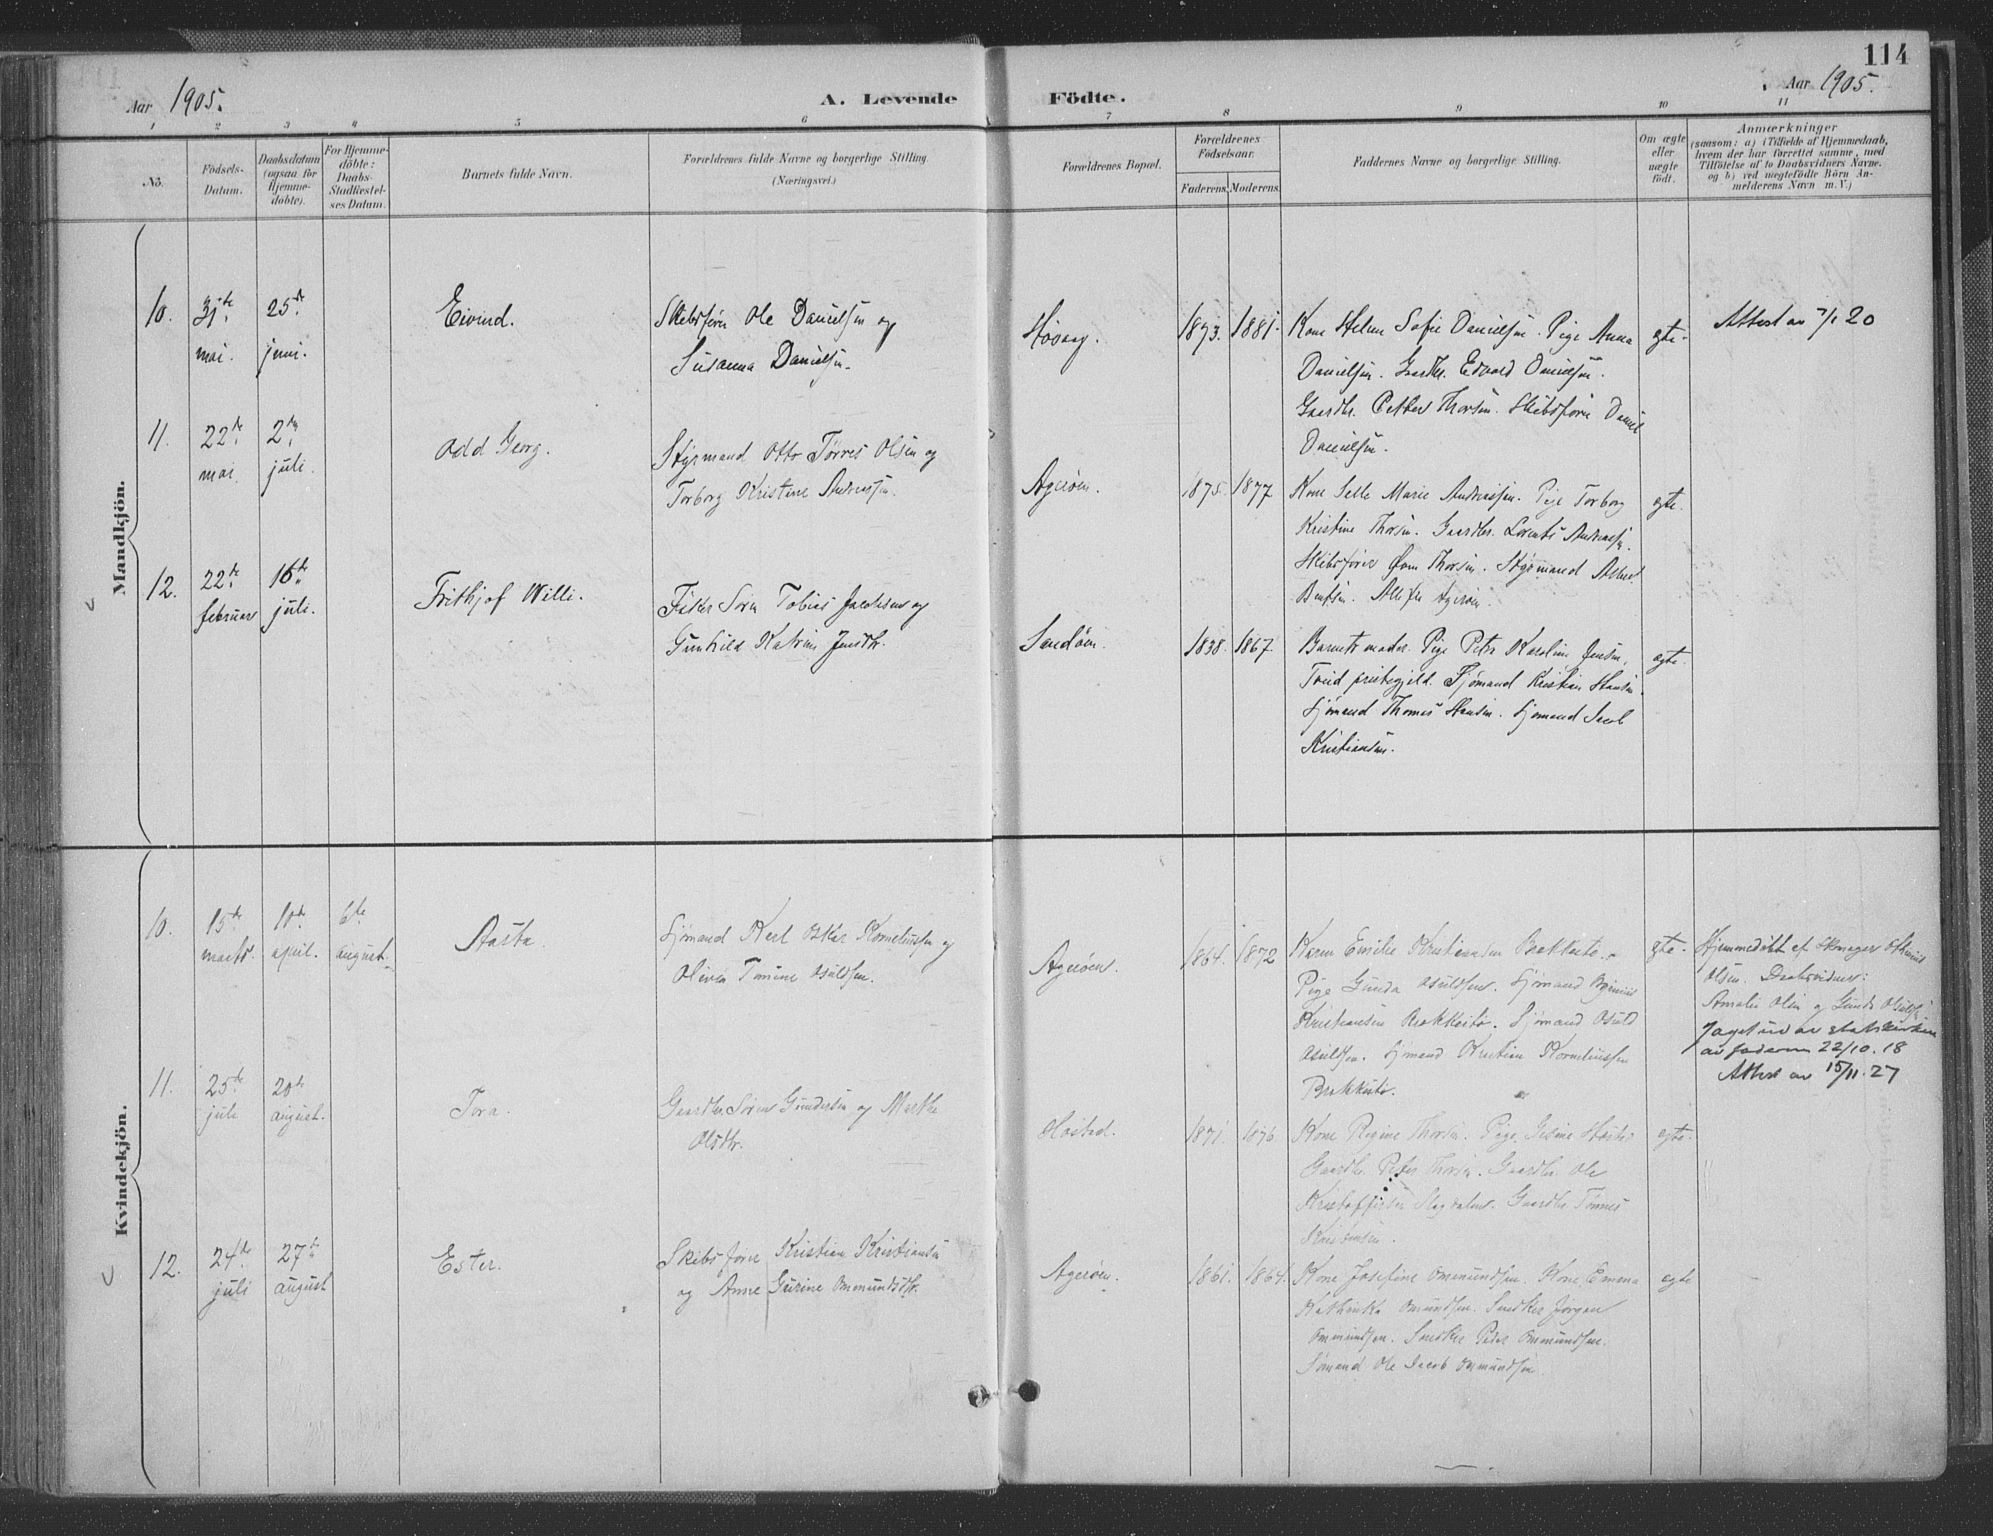 114
Aar 1905.
A. Levende Födte.
Aar 1905.
1 2 3 4 5 6 7 8 9 10 11
No.
Födsels-Datum.
Daabsdatum (ogsaa for Hjemme-döbte).
For Hjemme-döbte: Daabs-Stadfæstel-ses Datum.
Barnets fulde Navn.
Forældrenes fulde Navne og borgerlige Stilling
(Næringsvei.)
Forældrenes Bopæl.
Forældrenes Fødselsaar.
Faderens. Moderens.
Faddernes Navne og borgerlige Stilling.
Om ægte eller uægte födt.
Anmærkninger
(saasom: a) i Tilfælde af Hjemmedaab,
hvem der har forrettet samme, med
Tilföielse af to Daabsvidners Navne.
og b) ved uægtefödte Börn An-
melderens Navn m. V.)
Mandkjön.
10. 31te mai. 25de juni.
Eivind.
Skibsfører Ole Danielsen og
Susanna Danielsen.
Høvaag.
1873. 1881.
Kone Helene Sofie Danielsen. Pige Anna
Danielsen. Gaardbr. Edvard Danielsen.
Gaardbr. Petter Thorsen. Skibsfører Daniel
Danielsen.
egte.
Attest av 7/1 20
11. 22de mai. 2den juli.
Odd Georg.
Styrmand Otto Tørres Olsen og
Torborg Kristine Andreassen.
Agerøen.
1875. 1877
Kone Marie Andreassen. Pige Torborg
Kristine Thorsen. Gaardbr. Lorents Andreassen.
Skibsfører Thorsen. Styrmand
Alle fra Agerøen.
egte.
12. 22de februar 16de juli.
Frithjof Willi.
Fisker Søren Tobias Jacobsen og
Gunhild Katrine Jensdtr.
Sandøen.
1838. 1867
Barnets moder. Pige Petra Karoline Jensen,
Tveid prestegjeld. Sjømand Kristian Hansen.
Sjømand Thomas Hansen. Sjømand Jacob
Kristiansen.
egte.
Kvindekjön.
10. 15de marts. 10de april. 6te august.
Aasta.
Sjømand Karl Oskar Korneliussen og
Olivia Tomine Osuldsen.
Agerøen.
1864. 1872
Karen Emilie Kristiansen Brekkestø.
Pige Gunda Osuldsen. Sjømand
Kristiansen Brekkestø. Sjømand Osuld
Osuldsen. Sjømand Kristian Korneliussen
Brekkestø.
egte.
Hjemmedøbt af
Olsen. Daabsvidner:
Amalie Olsen og Gunda Osuldsen
av statskirken
av faderen 22/10. 18
Attest av 15/11. 27
11. 25de juli 20de august.
Tora.
Gaardbr. Søren Gundersen og Marthe
Olsdtr.
Høstad.
1871. 1876
Kone Regine Thorsen. Pige Gesine
Gaardbr. Peter Thorsen. Gaardbr. Ole
Kristoffersen Gaardbr. Tønnes
Kristensen.
egte.
12. 24de juli 27de august
Ester.
Skibsfører Kristian Kristiansen
og Anne Gurine Ommundsdtr.
Agerøen.
1861. 1864.
Kone Josefine Ommundsen. Kone Emma
Kathinka Omundsen. Snedker Jørgen
Ommundsen. Snedker Peder Ommundsen.
Sømand Ole Jacob Ommundsen
egte